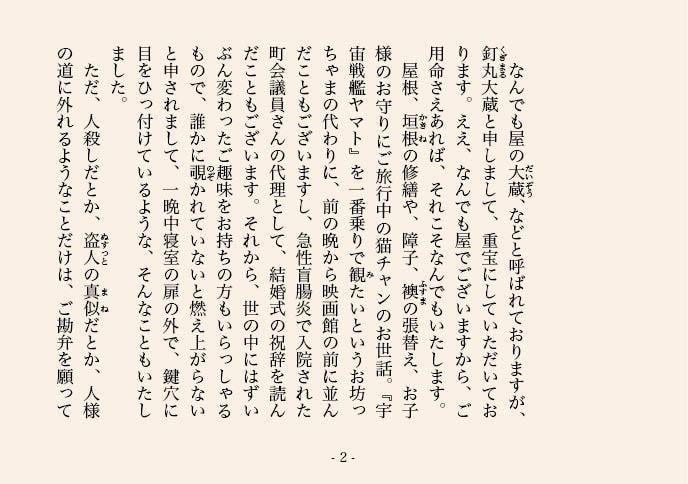 なんでも屋の大蔵、などと呼ばれておりますが、
釘丸大蔵と申しまして、重宝にしていただいてお
ります。ええ、なんでも屋でございますから、ご
用命さえあれば、それこそなんでもいたします。
　屋根、垣根の修繕や、障子、襖の張替え、お子
様のお守りにご旅行中の猫チャンのお世話。『宇
宙戦艦ヤマト』を一番乗りで観たいというお坊っ
ちゃまの代わりに、前の晩から映画館の前に並ん
だこともございますし、急性盲腸炎で入院された
町会議員さんの代理として、結婚式の祝辞を読ん
だこともございます。それから、世の中にはずい
ぶん変わったご趣味をお持ちの方もいらっしゃる
もので、誰かに覗かれていないと燃え上がらない
と申されまして、一晩中寝室の扉の外で、鍵穴に
目をひっ付けているような、そんなこともいたし
ました。
　ただ、人殺しだとか、盗人の真似だとか、人様
の道に外れるようなことだけは、ご勘弁を願って
- 2 -